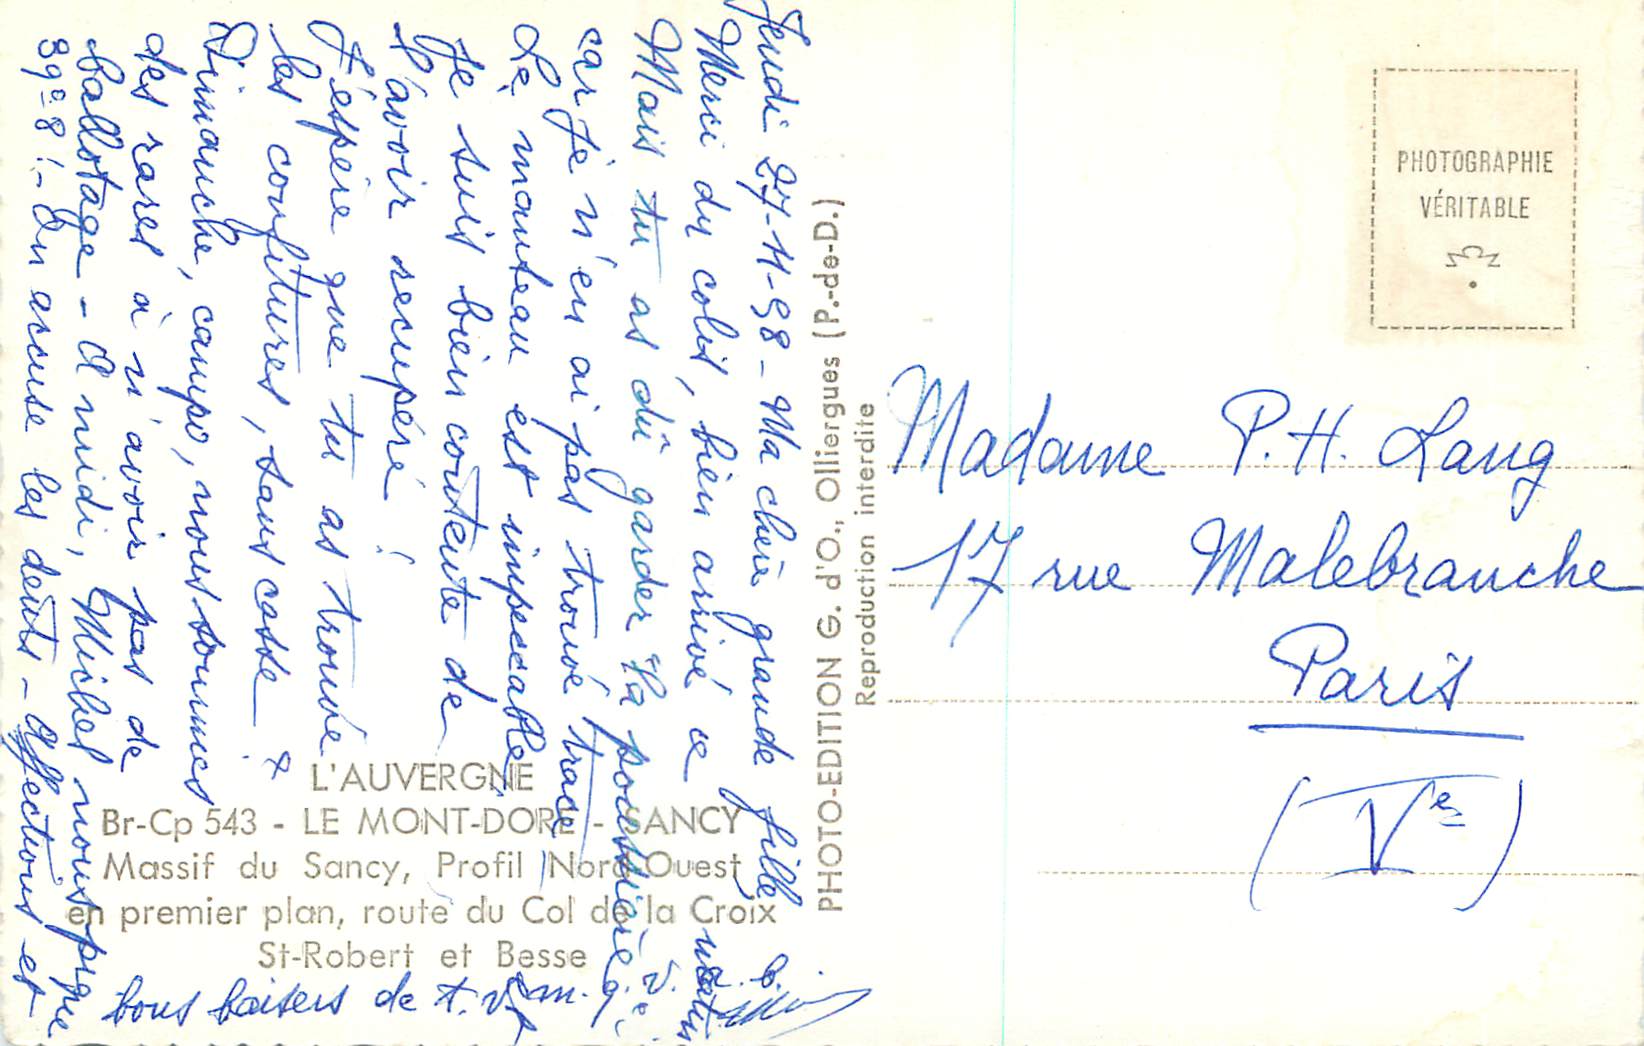 Jeudi 27-11-58 - Ma chère grande fille
Merci du colis, bien arrivé ce matin
Mais tu as dû garder la poussière
car je n'en ai pas trouvé trace
Le manteau est impeccable,
je suis bien contente de
l'avoir recupéré !
J'espère que tu as trouvé
les confitures, sans casse &
Dimanche, campo, nous sommes
des rares à n'avoir pas de
ballotage - A midi, Michel nous prique
39°8 ! - On accuse les dents - Affections et
bons baisers de t. v. m.
L'AUVERGNE
Br-Cp 543 - LE MONT-DORE - SANCY
Massif du Sancy, Profil Nord-Ouest
en premier plan, route du Col de la Croix
St-Robert et Besse
PHOTO-EDITION G. d'O., Olliergues (P.-de-D.)
Reproduction interdite
PHOTOGRAPHIE
VÉRITABLE
Madame P. H. Lang
17 rue Malebranche
Paris
(Ve)